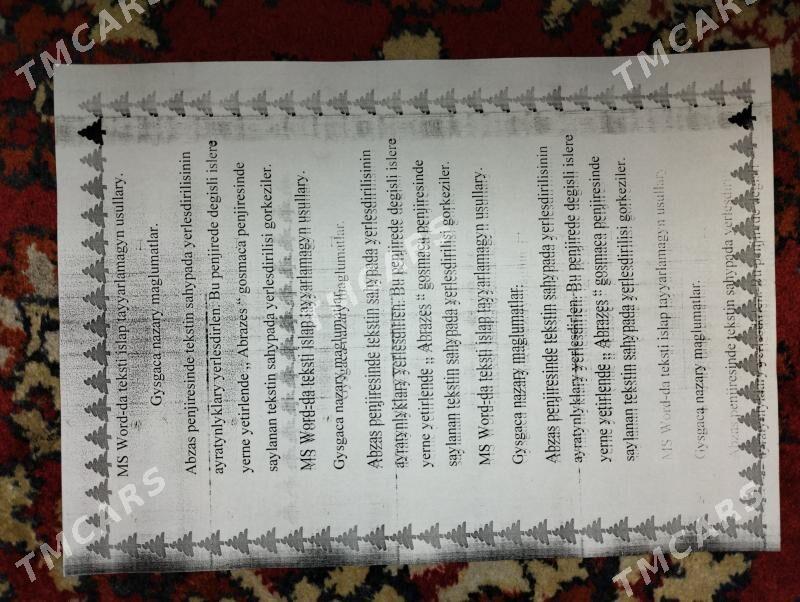 MS Word-da teksti islap tayyarlamagyn usullary.
Gysgaca nazary maglumatlar.
Abzas penjiresinde tekstin sahypada yerlesdirilisinin
ayratynlyklary yerlesdirlen. Bu penjirede degisli islere
yerne yetirlende ,, Abrazes “ gosmaca penjiresinde
saylanan tekstin sahypada yerlesdirilisi gorkeziler.
MS Word-da teksti islap tayyarlamagyn usullary.
Gysgaca nazary maglumatlar.
Abzas penjiresinde tekstin sahypada yerlesdirilisinin
ayratynlyklary yerlesdirlen. Bu penjirede degisli islere
yerne yetirlende ,, Abrazes “ gosmaca penjiresinde
saylanan tekstin sahypada yerlesdirilisi gorkeziler.
MS Word-da teksti islap tayyarlamagyn usullary.
Gysgaca nazary maglumatlar.
Abzas penjiresinde tekstin sahypada yerlesdirilisinin
ayratynlyklary yerlesdirlen. Bu penjirede degisli islere
yerne yetirlende ,, Abrazes “ gosmaca penjiresinde
saylanan tekstin sahypada yerlesdirilisi gorkeziler.
MS Word-da teksti islap tayyarlamagyn usullary
Gysgaca nazary maglumatlar.
Abzas penjiresinde tekstin sahypada
TMCARS
TMCARS
TMCARS
TMCARS
TMCARS
TMCARS
TMCARS